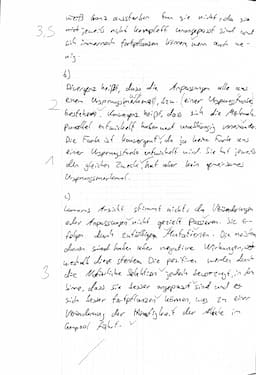 weiß ganz aussterben tun sie nicht, da sie
3,5 mit jeweils nicht komplett unangepasst sind und
sich immernoch fortpflanzen können wenn auch we-
nig.
b)
Divergenz heißt, dass die Anpassungen alle aus
2 einem Ursprungsmerkmal, bzw. einer Ursprungsfarbe
bestehen. Konvergenz heißt, dass sich die Merkmale
parallel entwickelt haben und unabhängig voneinander.
Die Farbe ist konvergent, da ja keine Farbe aus
einer Ursprungsfarbe entwickelt wird. Sie hat jeweils
1 den gleichen Zweck, hat aber kein gemeinsames
Ursprungsmerkmal.
c)
Ansicht stimmt nicht, da Veränderungen
oder Anpassungen nicht gezielt passieren. Sie er-
folgen durch zufällige Mutationen. Die meisten
davon sind haben aber negative Wirkungen,
weshalb diese sterben. Die positiven werden durch
3 die Natürliche Selektion jedoch bevorzugt, in dem
Sinne, dass sie besser angepasst sind und es
sich besser fortpflanzen können, was zu einer
Veränderung der Häufigkeit der Allele im
Genpool führt. ✓